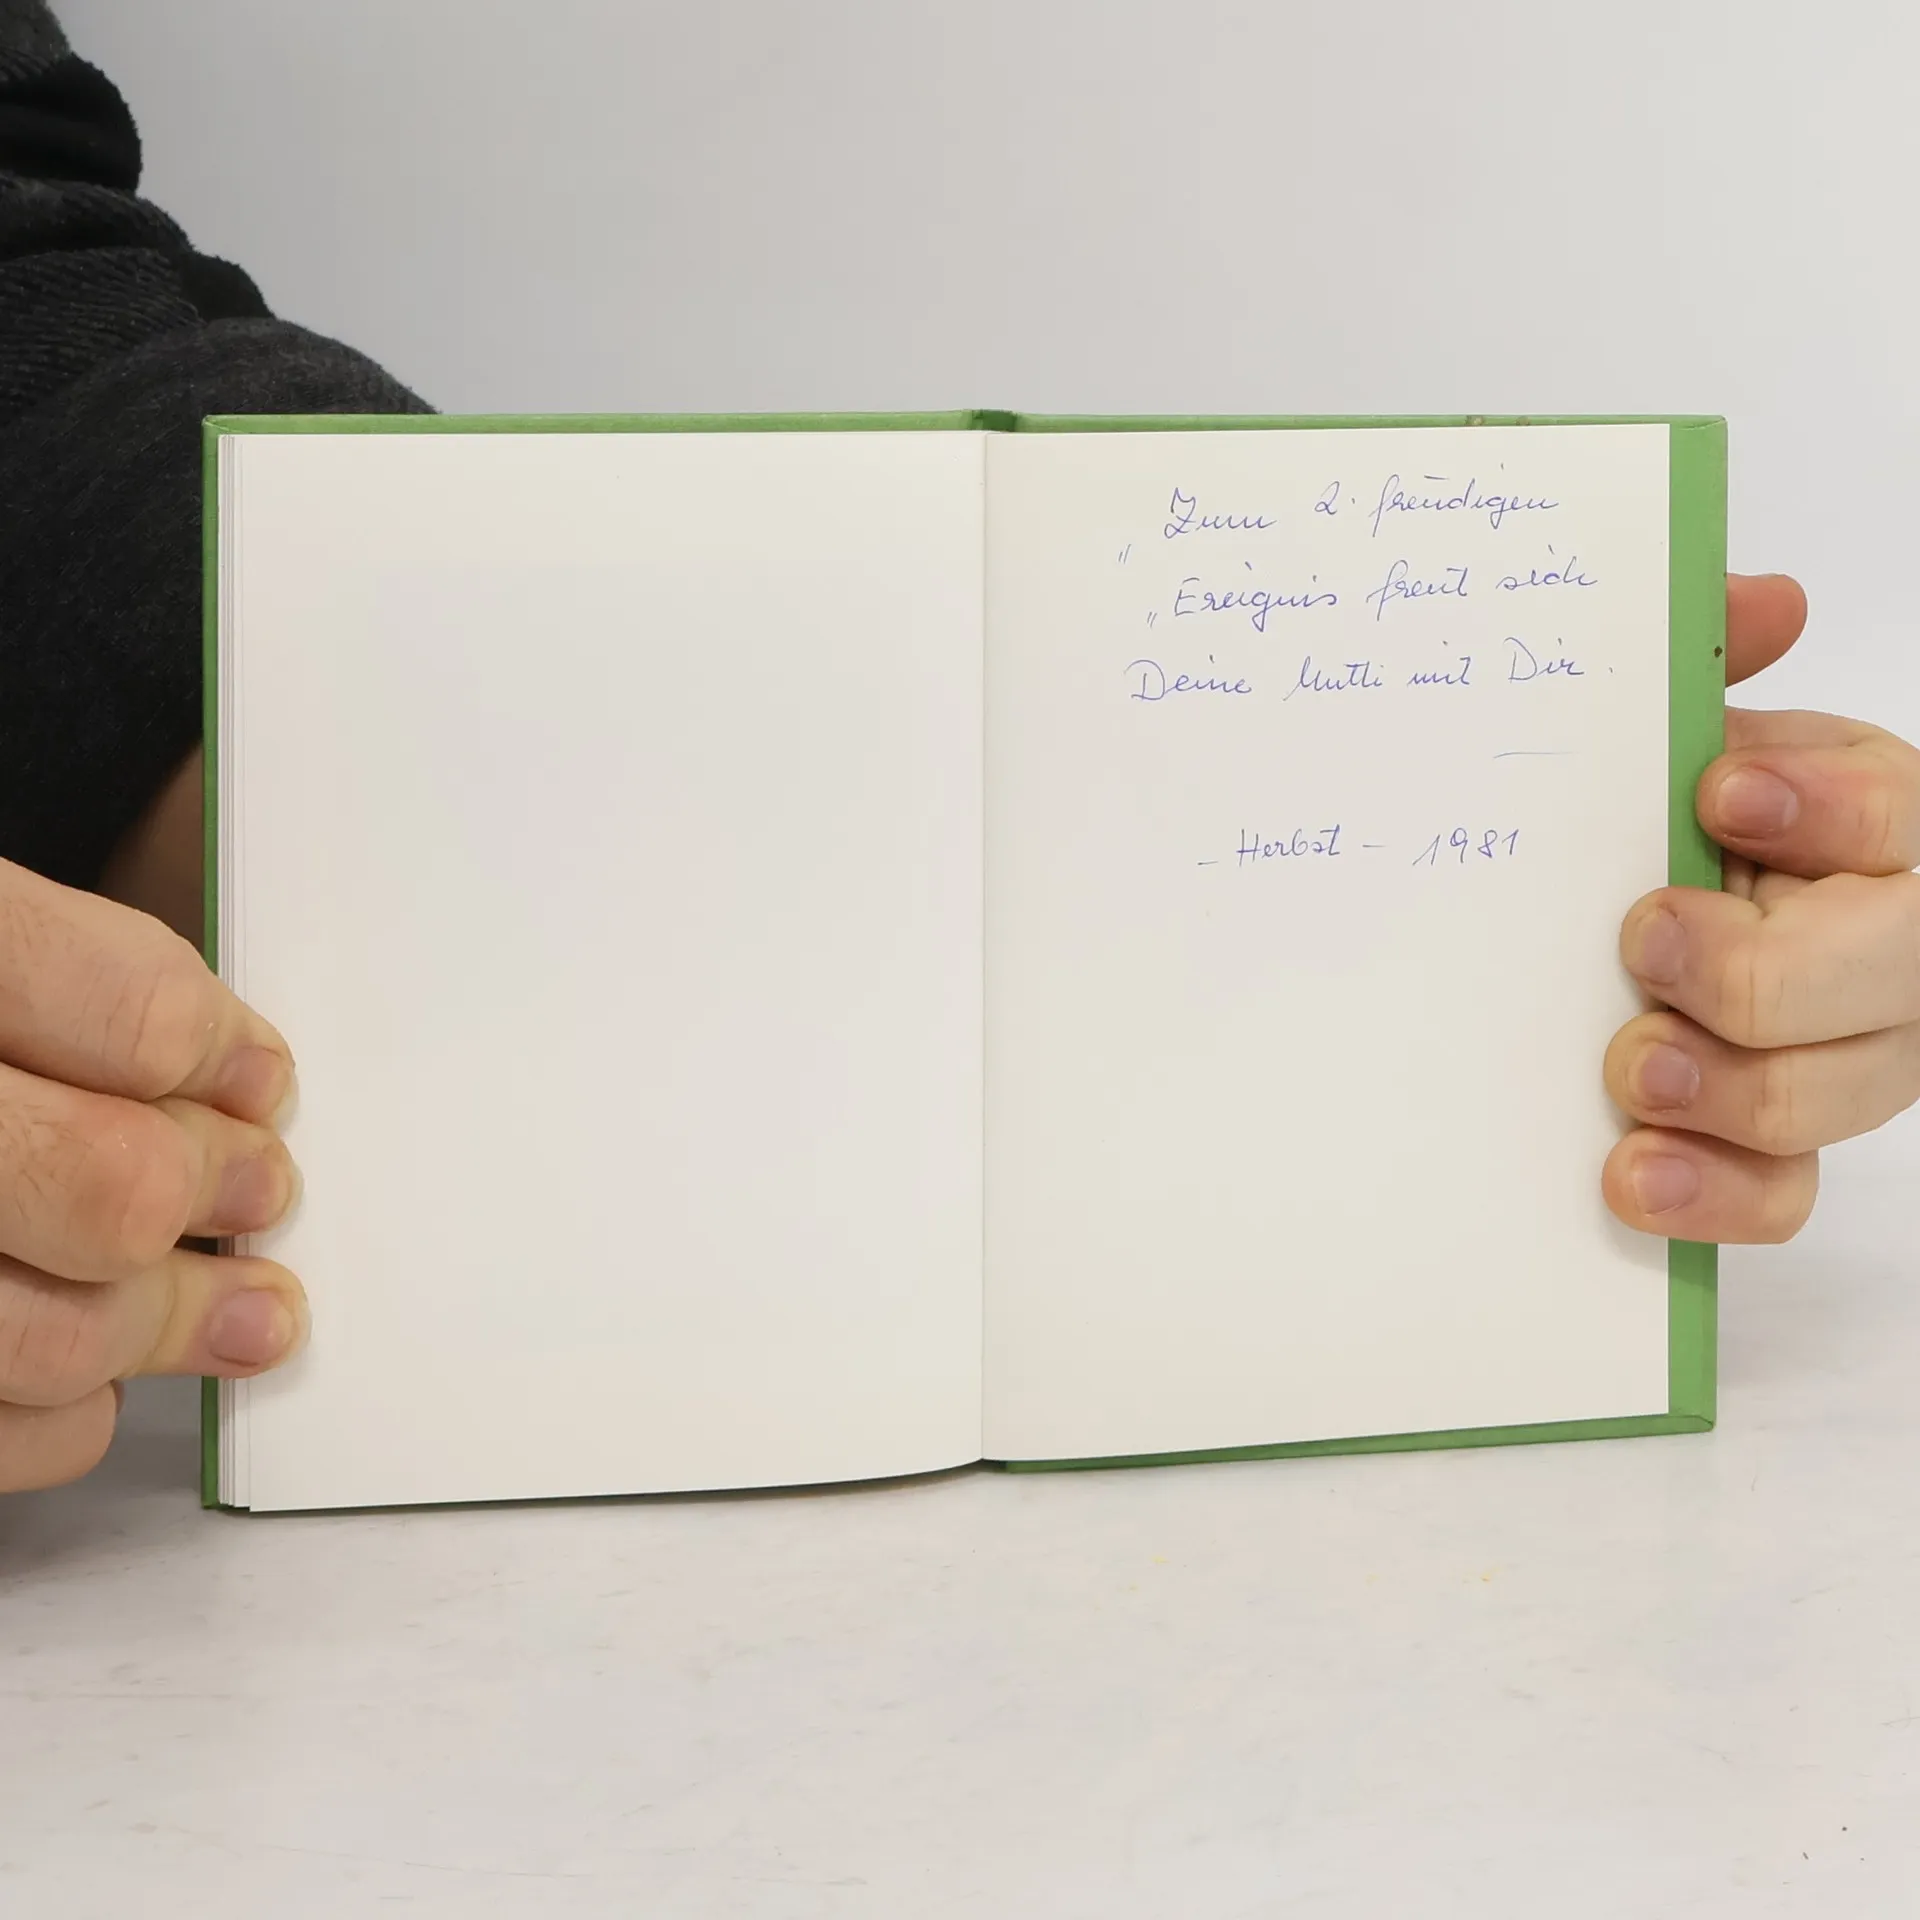 „ Zum 2. freudigen
„ Ereignis freut sich
Deine Mutti mit Dir.
– Herbst – 1981